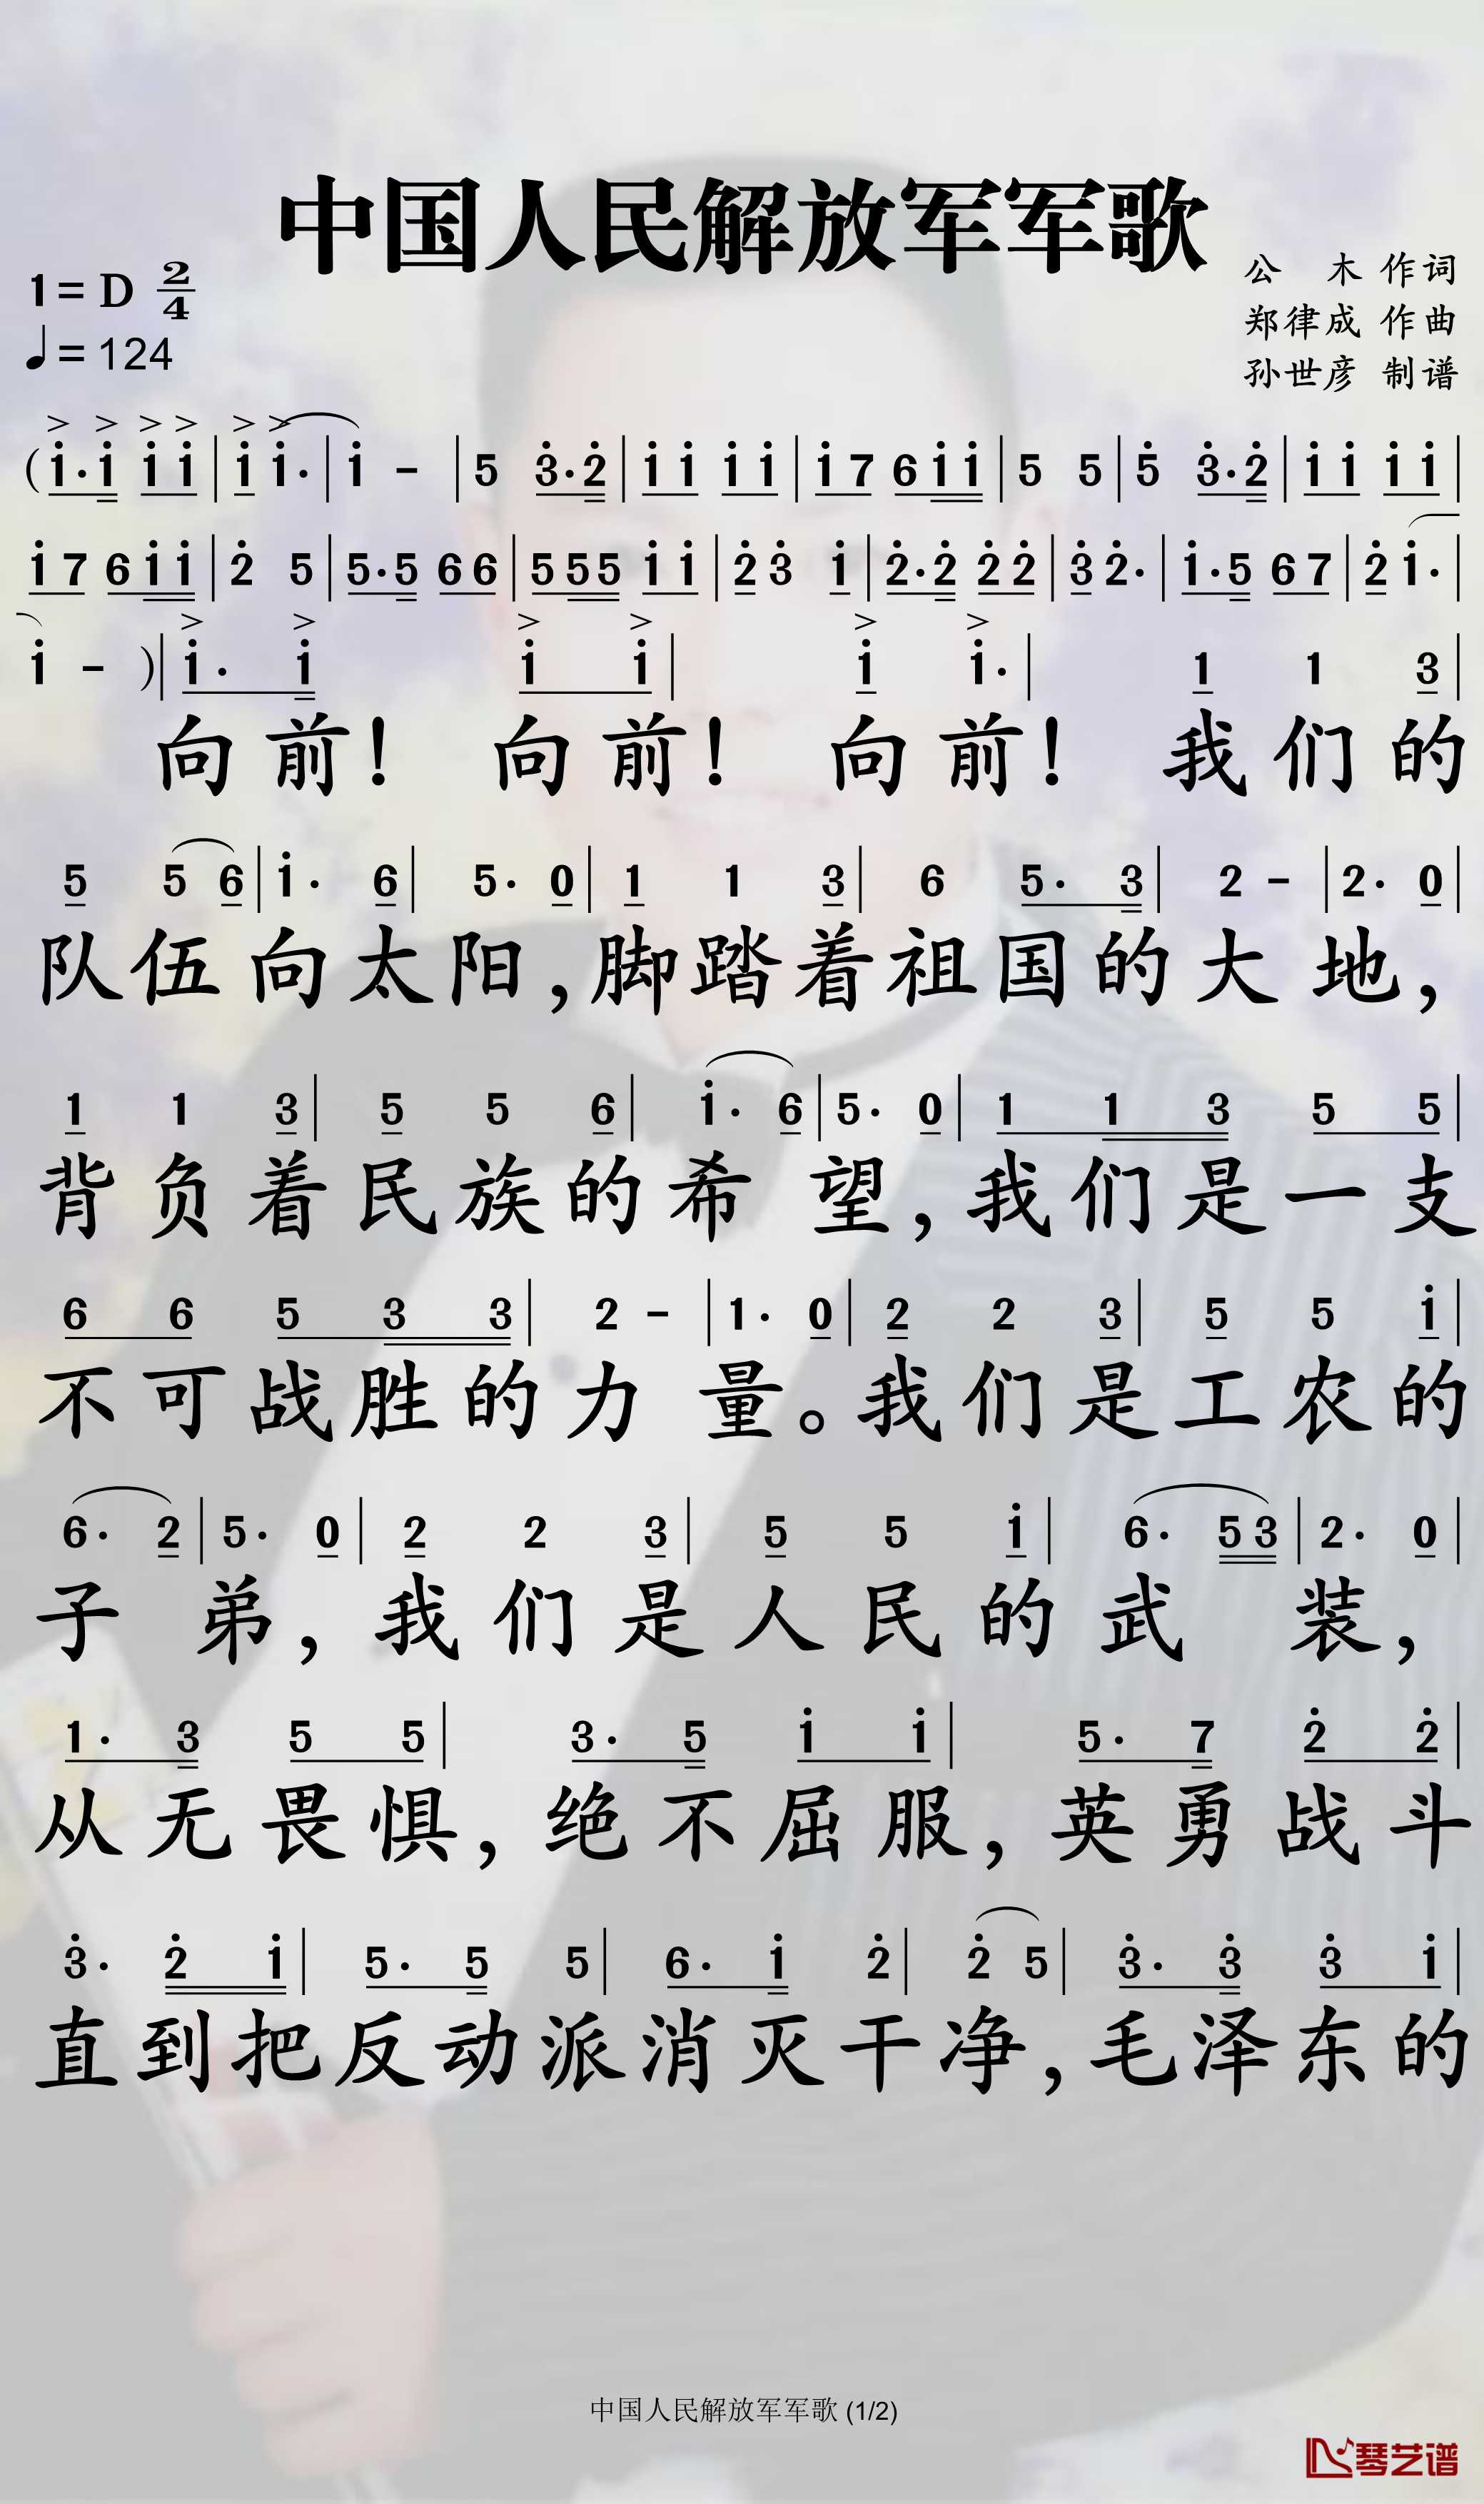 中国人民解放军军歌
1= D 2/4
公 木 作词
♩= 124
郑律成 作曲
孙世彦 制谱
(i·i i i | i i· | i - | 5 3̇·2̇ | i i i i | i 7 6 i i | 5 5 | 5̇ 3̇·2̇ | i i i i |
i 7 6 i i | 2̇ 5 | 5·5 6 6 | 5 5 5 i i | 2̇ 3̇ i | 2̇·2̇ 2̇ 2̇ | 3̇ 2̇· | i·5 6 7 | 2̇ i· |
i - ) | i· i i i | i i· | 1 1 3 |
向前! 向前! 向前! 我们的
5 5 6 | i· 6 | 5· 0 | 1 1 3 | 6 5· 3 | 2 - | 2· 0 |
队伍向太阳,脚踏着祖国的大地,
1 1 3 | 5 5 6 | i· 6 | 5· 0 | 1 1 3 5 5 |
背负着民族的希望,我们是一支
6 6 5 3 3 | 2 - | 1· 0 | 2 2 3 | 5 5 i |
不可战胜的力量。我们是工农的
6· 2 | 5· 0 | 2 2 3 | 5 5 i | 6· 5 3 | 2· 0 |
子弟,我们是人民的武装,
1· 3 5 5 | 3· 5 i i | 5· 7 2̇ 2̇ |
从无畏惧,绝不屈服,英勇战斗
3̇· 2̇ i | 5· 5 5 | 6· i 2̇ | 2̇ 5 | 3̇· 3̇ 3̇ i |
直到把反动派消灭干净,毛泽东的
中国人民解放军军歌 (1/2)
琴艺谱